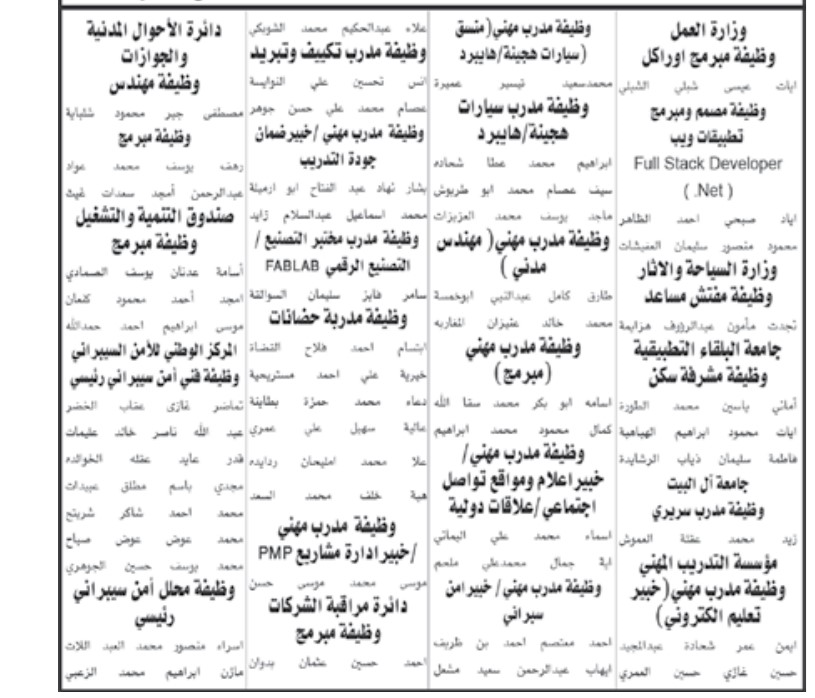 وزارة العمل
وظيفة مبرمج اوراكل
ايات عيسى شبلي الشبلي
وظيفة مصمم ومبرمج
تطبيقات ويب
Full Stack Developer
( .Net )
اياد صبحي احمد الظاهر
محمود منصور سليمان
وزارة السياحة والاثار
وظيفة مفتش مساعد
نجدت مأمون عبدالرؤوف هزايمة
جامعة البلقاء التطبيقية
وظيفة مشرفة سكن
أماني ياسين محمد الطورة
ايات محمود ابراهيم الهباهبة
فاطمة سليمان ذياب الرشايدة
جامعة آل البيت
وظيفة مدرب سريري
زيد محمد عقلة العموش
مؤسسة التدريب المهني
وظيفة مدرب مهني(خبير
تعليم الكتروني)
ايمن عمر شحادة عبدالمجيد
حسين غازي حسين العمري
وظيفة مدرب مهني( منسق
سيارات هجينة/هايبرد)
محمدسعيد تيسير عميرة
وظيفة مدرب سيارات
هجينة/هايبرد
ابراهيم محمد عطا شحاده
سيف عصام محمد ابو طربوش
ماجد يوسف محمد العزيزات
وظيفة مدرب مهني( مهندس
مدني )
طارق كامل عبدالنبي ابوخمسة
محمد خالد عليزان المغاربه
وظيفة مدرب مهني
(مبرمج)
اسامه ابو بكر محمد سقا الله
كمال محمود محمد ابراهيم
وظيفة مدرب مهني/
خبير اعلام ومواقع تواصل
اجتماعي/علاقات دولية
اسماء محمد علي اليماني
اية جمال محمدعلي ملحم
وظيفة مدرب مهني/ خبير امن
سبراني
احمد معتصم احمد بن طريف
ايهاب عبدالرحمن سعيد مشعل
علاء عبدالحكيم محمد الشوبكي
وظيفة مدرب تكييف وتبريد
انس تحسين علي النوايسة
عصام محمد علي حسن جوهر
وظيفة مدرب مهني /خبير ضمان
جودة التدريب
بشار نهاد عبد الفتاح ابو ارميلة
محمد اسماعيل عبدالسلام زايد
وظيفة مدرب مختبر التصنيع /
التصنيع الرقمي FABLAB
سامر فايز سليمان السوالقة
وظيفة مدربة حضانات
ابتسام احمد فلاح القضاة
خيرية علي احمد مستريحية
دعاء محمد حمزة بطاينة
عالية سهيل علي عمري
علا محمد امليحان ردايده
هبة خلف محمد السعد
وظيفة مدرب مهني
/خبير ادارة مشاريع PMP
موسى محمد موسى حسن
دائرة مراقبة الشركات
وظيفة مبرمج
احمد حسين عثمان بدوان
دائرة الأحوال المدنية
والجوازات
وظيفة مهندس
مصطفى جبر محمود شلباية
وظيفة مبرمج
رهف يوسف محمد عواد
عبدالرحمن أمجد سعدات غيث
صندوق التنمية والتشغيل
وظيفة مبرمج
أسامة عدنان يوسف الصمادي
امجد أحمد محمود كنعان
موسى ابراهيم احمد حمدالله
المركز الوطني للأمن السيبراني
وظيفة فني أمن سيبراني رئيسي
تماضر غازى عقاب الخضر
عبد الله ناصر خالد عليمات
قدر عايد عقله الخوالده
مجدي باسم مطلق عبيدات
محمد احمد شاكر شريتح
محمد عوض عوض صباح
محمد يوسف حسين الجوهري
وظيفة محلل أمن سيبراني
رئيسي
اسراء منصور محمد العبد اللات
مازن ابراهيم محمد الزعبي